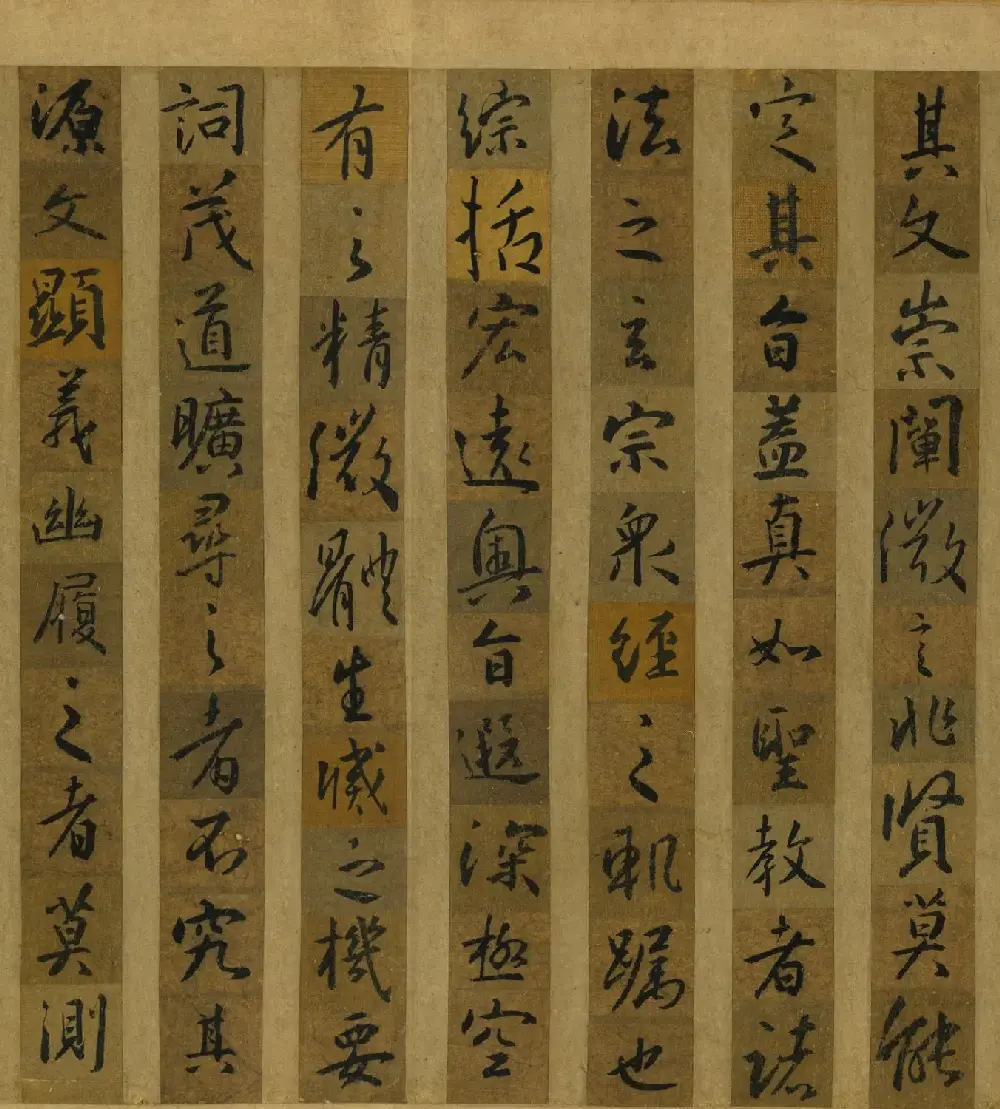 其文崇闡微言非賢莫能
定其旨蓋真如聖教者諸
法之玄宗衆經之軌躅也
綜括宏遠奧旨遐深極空
有之精微體生滅之機要
詞茂道曠尋之者不究其
源文顯義幽履之者莫測